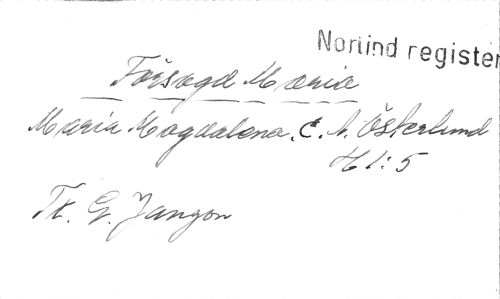 Norlind register
Försagd Maria
Maria Magdalena. C. A. Österlund
H 1:5
Tr. G. Jangon